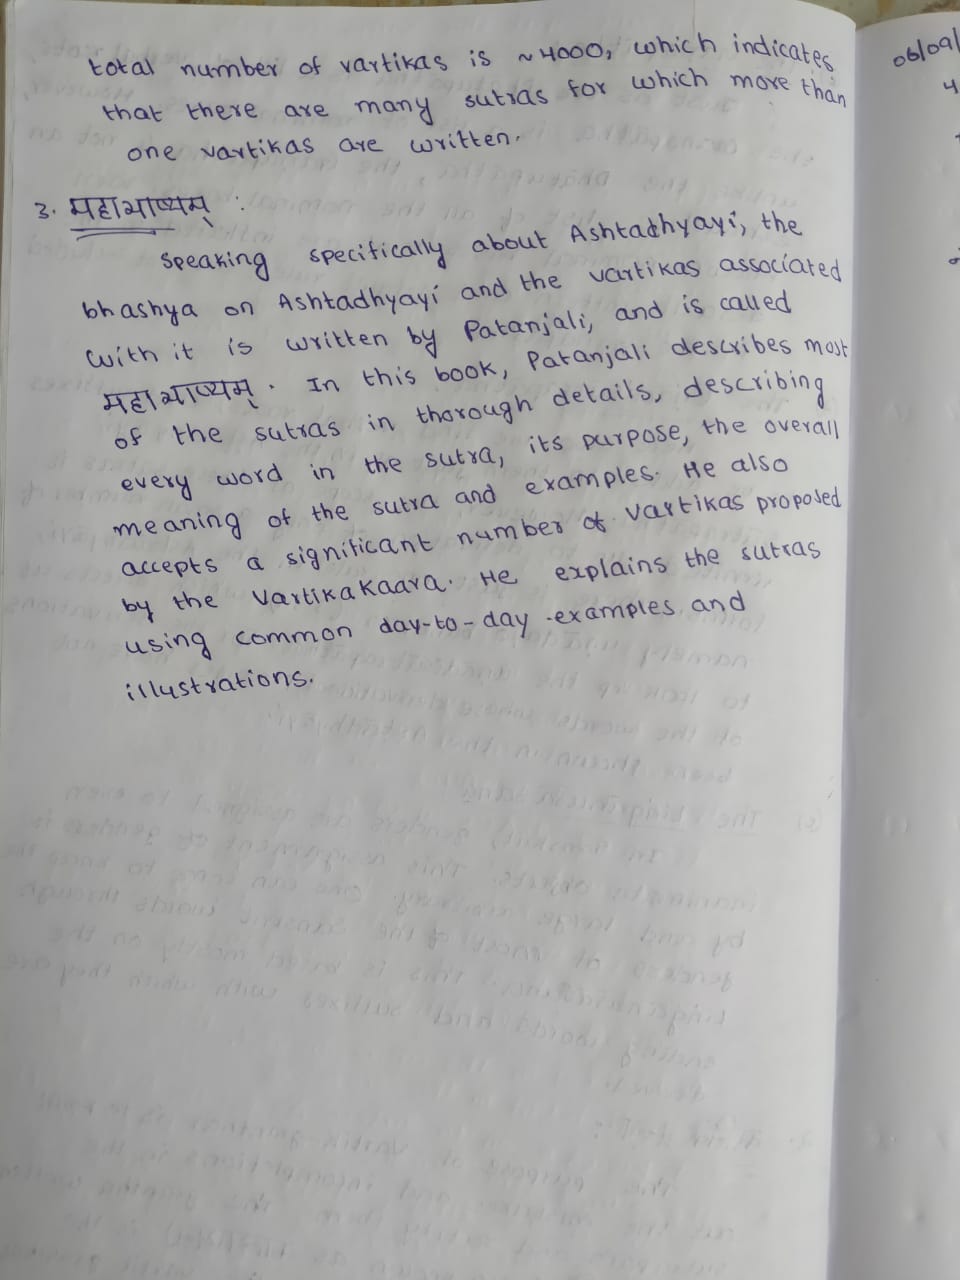 total number of vartikas is ~4000, which indicates
that there are many sutras for which more than
one vartikas are written.
3. महाभाष्यम् :
Speaking specifically about Ashtadhyayi, the
bhashya on Ashtadhyayi and the vartikas associated
with it is written by Patanjali, and is called
महाभाष्यम्. In this book, Patanjali describes most
of the sutras in thorough details, describing
every word in the sutra, its purpose, the overall
meaning of the sutra and examples. He also
accepts a significant number of vartikas proposed
by the Vartikakaara. He explains the sutras
using common day-to-day examples and
illustrations.
06/09/
4